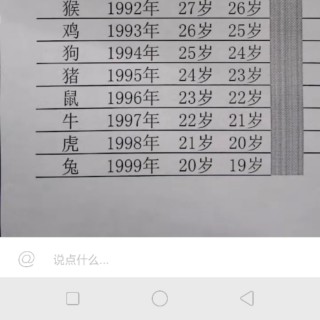 猴 1992年 27岁 26岁
鸡 1993年 26岁 25岁
狗 1994年 25岁 24岁
猪 1995年 24岁 23岁
鼠 1996年 23岁 22岁
牛 1997年 22岁 21岁
虎 1998年 21岁 20岁
兔 1999年 20岁 19岁
@ 说点什么...